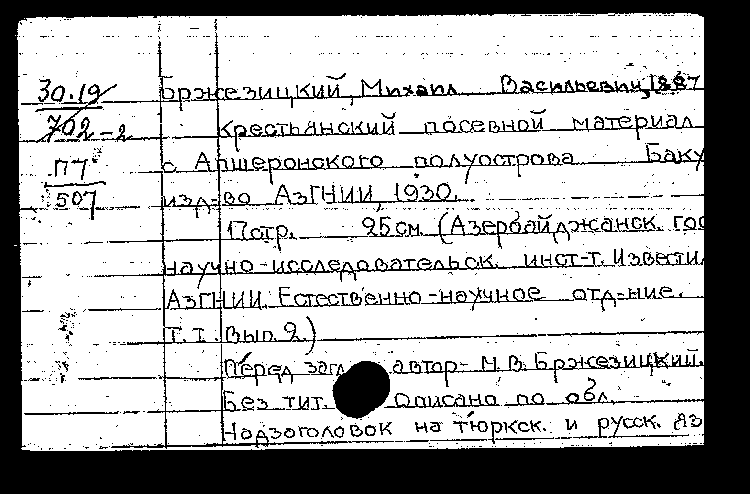 30.19
702-2
П7
507
Бржезицкий, Михаил Васильевич, 1887
Крестьянский посевной материал
с Апшеронского полуострова Баку
изд-во АзГНИИ, 1930.
17 стр. 25 см. (Азербайджанск. гос
научно-исследовательск. инст-т. Извести.
АзГНИИ. Естественно-научное отд-ние.
Т. I. Вып. 2.)
Перед загл. автор- М.В. Бржезицкий.
Без тит. Описано по обл.
Надзоголовок на тюркск. и русск. яз